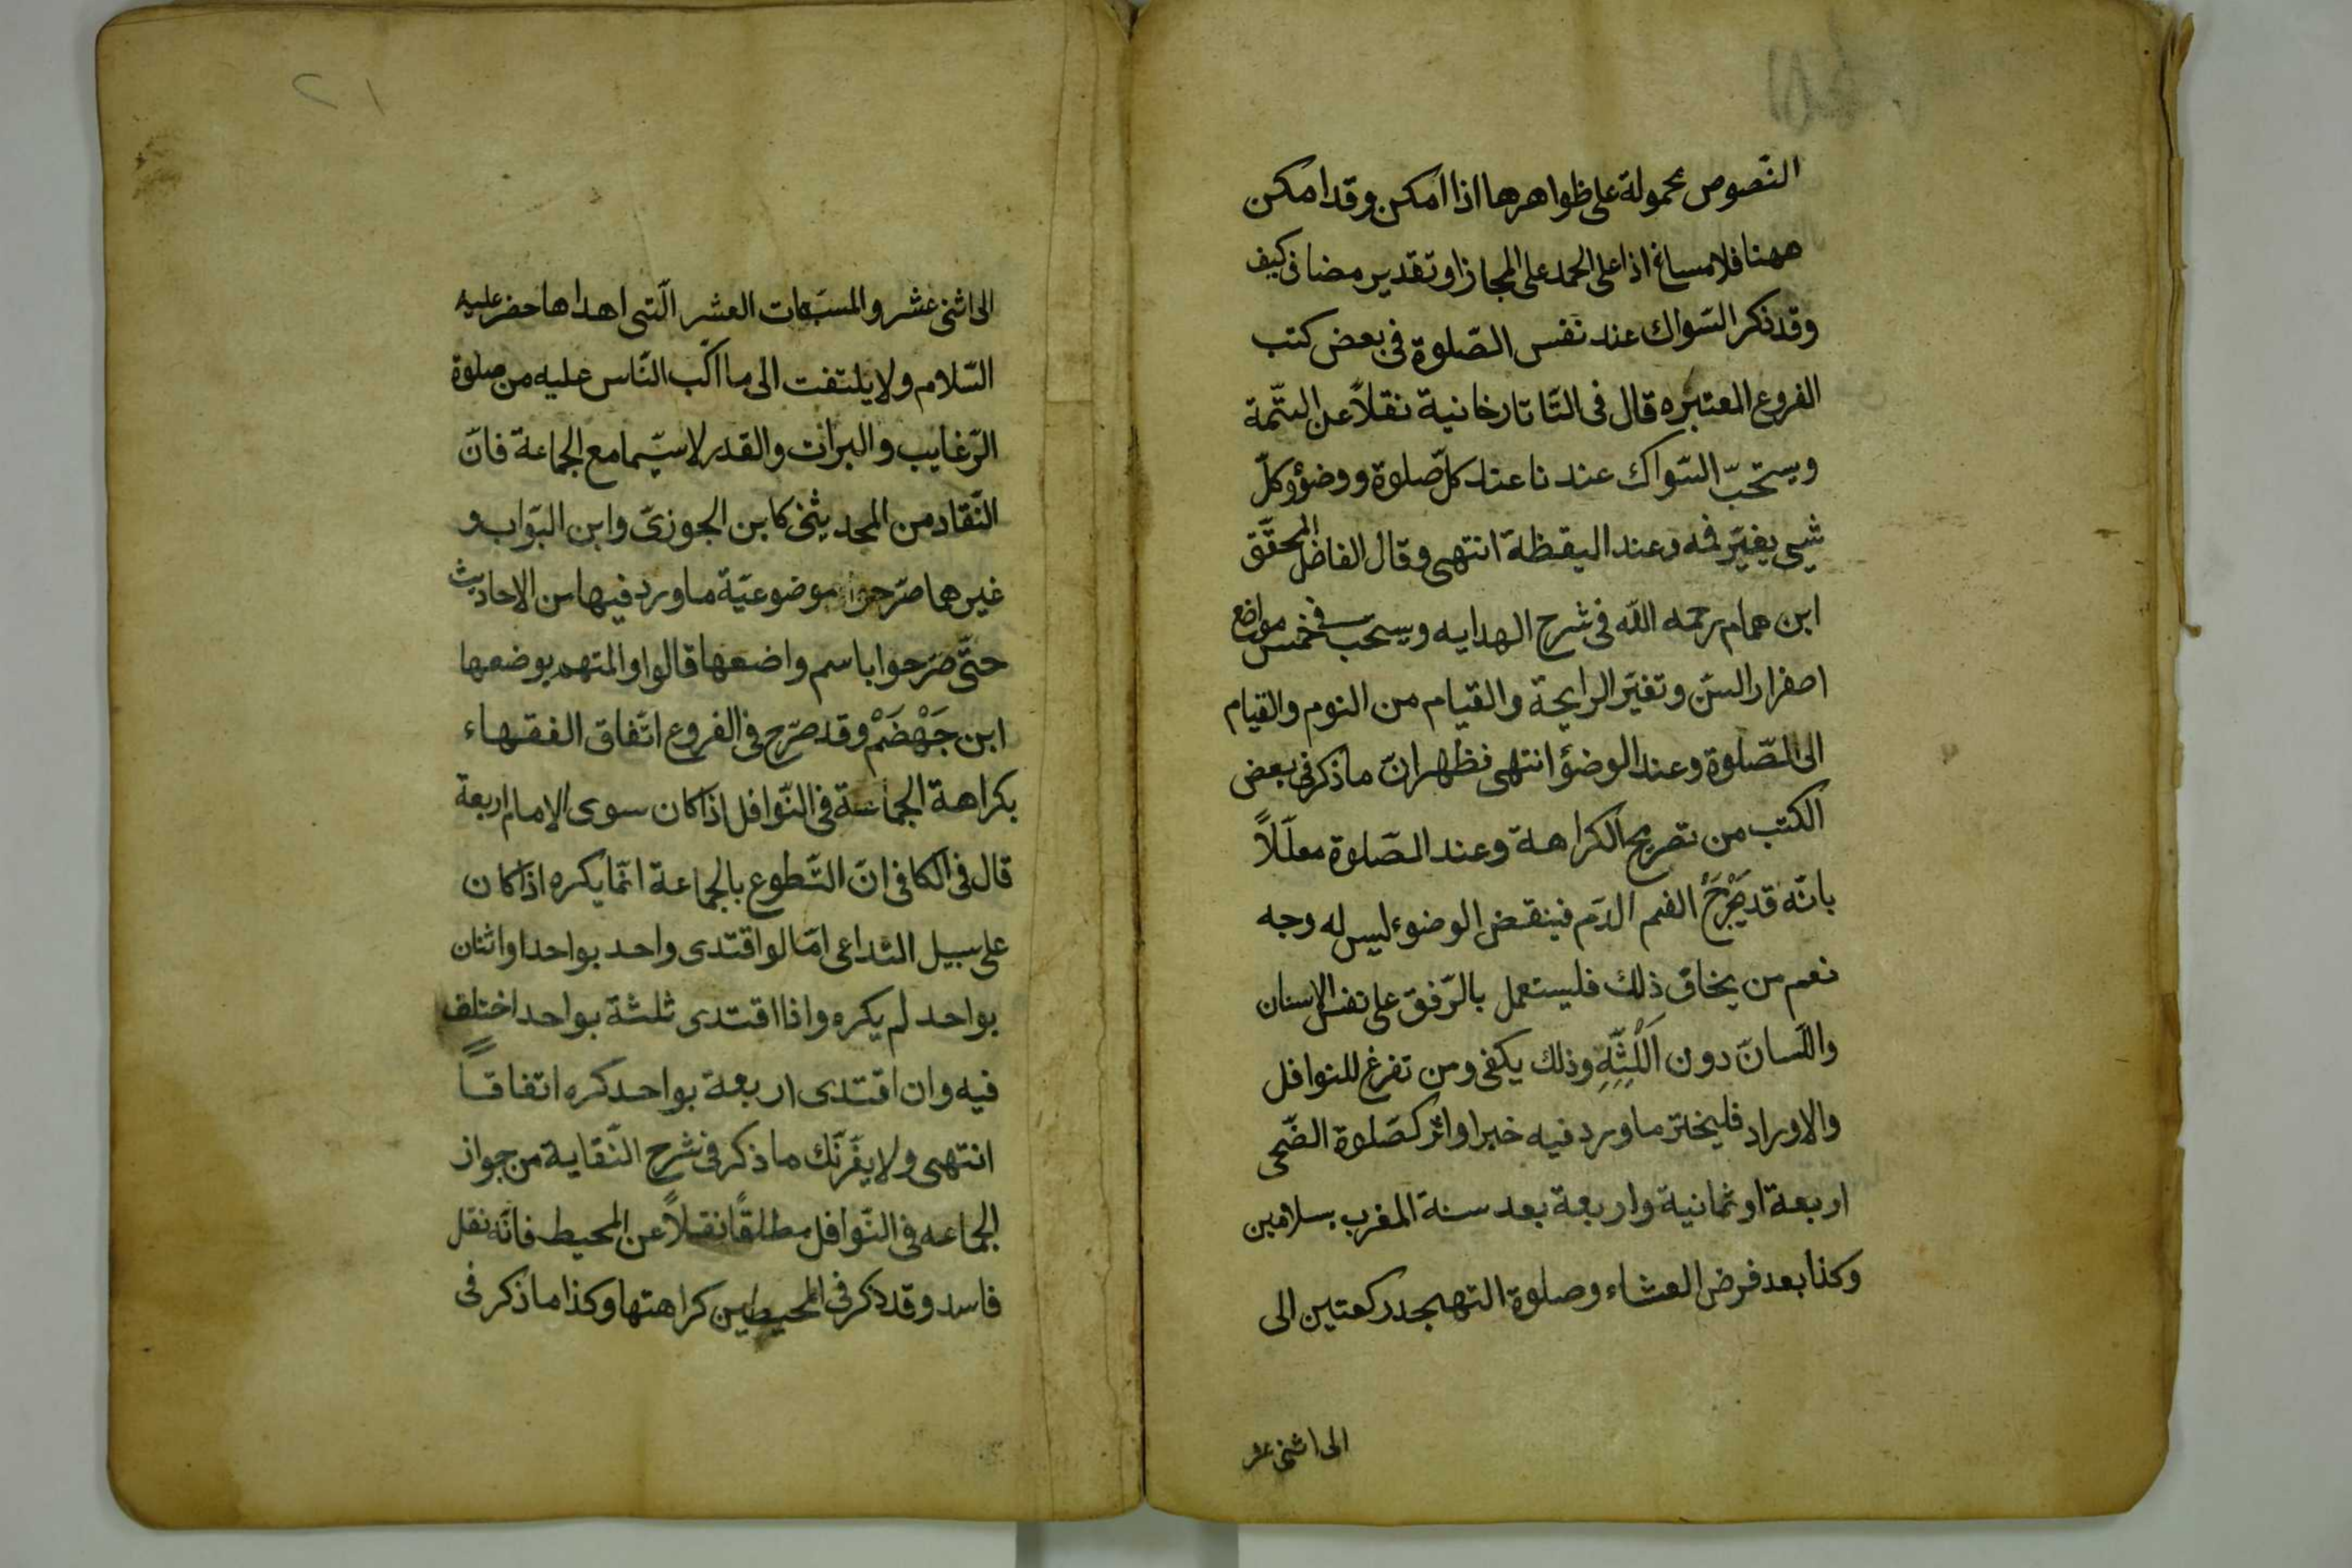 النّصوص محمولة على ظواهرها اذا امكن وقد امكن
ههنا فلا مساغ اذا على الحمد على المجاز او تقدير مضاف كيف
وقد ذكر السّواك عند نفس الصّلوة فى بعض كتب
الفروع المعتبره قال فى التّاتارخانية نقلاً عن التتّمة
ويستحبّ السّواك عندنا عند كلّ صلوة ووضؤ وكلّ
شيى يغيّر فمه وعند اليقظة انتهى وقال الفاضل المحقّق
ابن همام رحمه الله فى شرح الهدايه ويستحبّ فى خمس مواضع
اصفرار السنّ وتغيّر الرايحة والقيام من النوم والقيام
الى الصّلوة وعند الوضؤ انتهى فظهر انّ ما ذكر فى بعض
الكتب من تصريح الكراهة وعند الصّلوة معلّلاً
بانّه قد يخرج الفم الدّم فينقض الوضوء ليس له وجه
نعم من يخاف ذلك فليستعمل بالرّفق على نفس الاسنان
واللّسان دون اللّثّه وذلك يكفى ومن تفرغ للنوافل
والاوراد فليختر ما ورد فيه خبر او اثر كصّلوة الضّحى
اربعة او ثمانية واربعة بعد سنة المغرب بسلامين
وكذا بعد فرض العشاء وصلوة التهجد ركعتين الى
الى اثنى عشر
٢١
الى اثنى عشر والمسبّعات العشر الّتى اهداها خضر عليه
السّلام ولا يلتفت الى ما اكّب النّاس عليه من صلوة
الرّغايب والبرات والقدر لا سيّما مع الجماعة فانّ
النّقاد من المحديثى كابن الجوزىّ وابن البوّاب و
غيرهما صرّحوا بموضوعيّة ما ورد فيها من الاحاديث
حتّى صرّحوا باسم واضعها قالوا والمتهم بوضعها
ابن جَهْضَمْ وقد صرّح فى الفروع اتّفاق الفقهاء
بكراهة الجماعة فى النّوافل اذا كان سوى الامام اربعة
قال فى الكافى انّ التّطوع بالجماعة انّما يكره اذا كان
على سبيل التداعى امّا لو اقتدى واحد بواحد او اثنان
بواحد لم يكره واذا اقتدى ثلثة بواحد اختلف
فيه وان اقتدى اربعة بواحد كره اتفاقاً
انتهى ولا يغرّنّك ما ذكر فى شرح النّقاية من جواز
الجماعه فى النّوافل مطلقًا نقلاً عن المحيط فانّه نقل
فاسد وقد ذكر فى المحيطين كراهتها وكذا ما ذكر فى